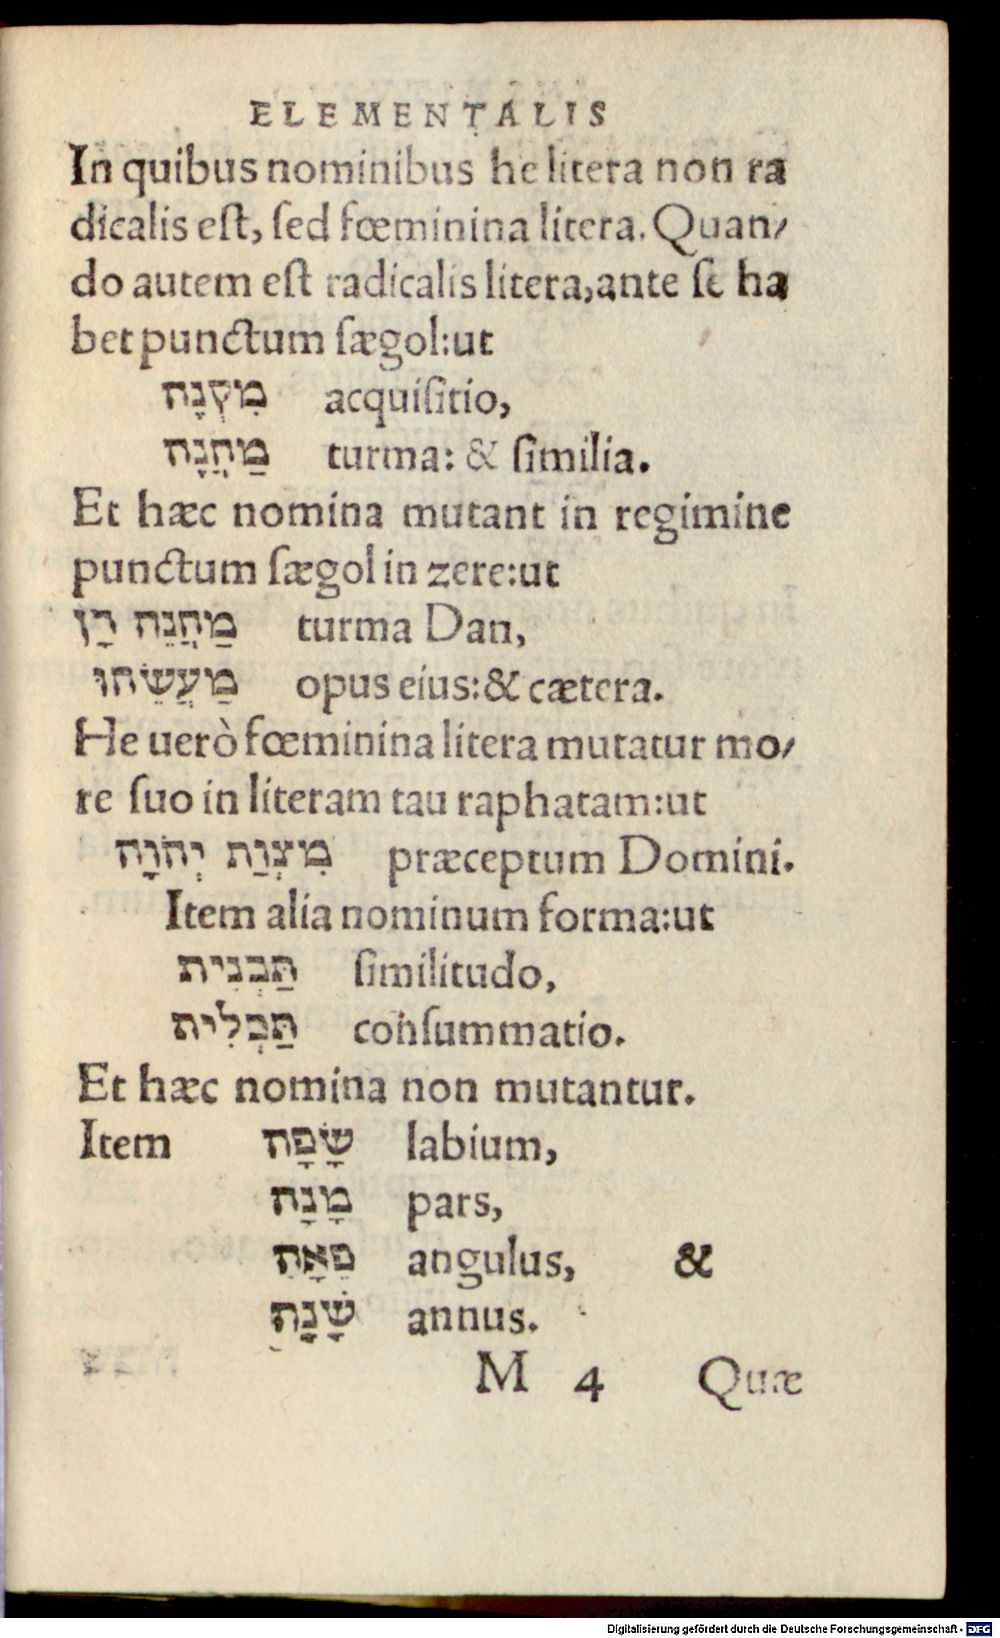 ELEMENTALIS
In quibus nominibus he litera non ra
dicalis eſt, ſed fœminina litera. Quan/
do autem eſt radicalis litera, ante ſe ha
bet punctum ſægol: ut
מִקְנָה acquiſitio,
מַחֲנָה turma: & ſimilia.
Et hæc nomina mutant in regimine
punctum ſægol in zere: ut
מַחֲנֵה דָן turma Dan,
מַעֲשֵׂהוּ opus eius: & cætera.
He uerò fœminina litera mutatur mo/
re ſuo in literam tau raphatam: ut
מִצְוַת יְהֹוָה præceptum Domini.
Item alia nominum forma: ut
תַּבְנִית ſimilitudo,
תַּכְלִית conſummatio.
Et hæc nomina non mutantur.
Item שָׂפָה labium,
מָנָה pars,
פֵּאָה angulus, &
שָׁנָה annus.
M 4 Quæ
Digitalisierung gefördert durch die Deutsche Forschungsgemeinschaft - DFG